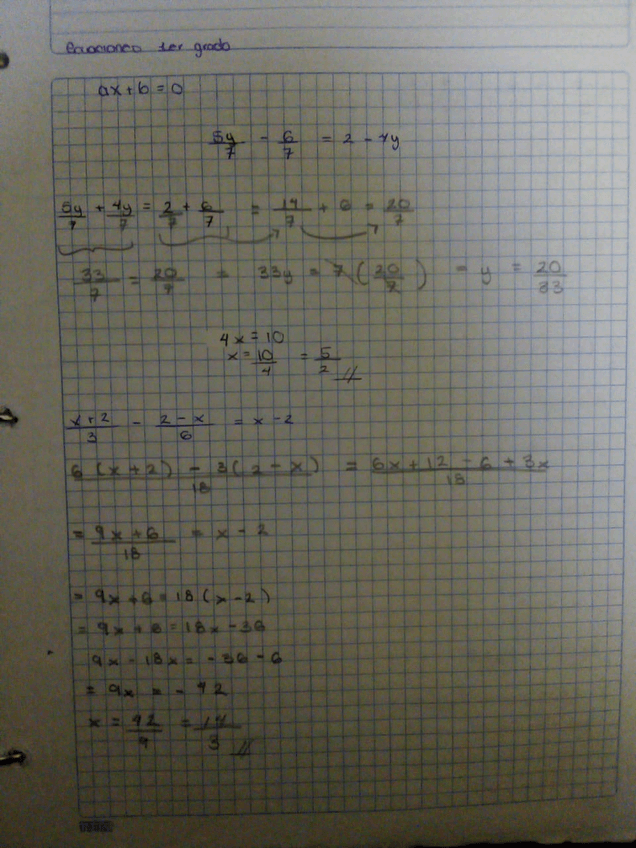 Ecuaciones 1er grado
ax+b=0
5y/7 - 6/7 = 2 - 4y
5y/7 + 4y/7 = 2/7 + 6/7 = 14/7 + 6 = 20/7
33/7 = 20/7 = 33y = 7 (20/7) = y = 20/33
4x = 10
x = 10/4 = 5/2 //
x+2/3 - 2-x/6 = x-2
6(x+2) - 3(2-x)/18 = 6x+12-6+3x/18
= 9x+6/18 = x-2
= 9x+6=18(x-2)
= 9x+6=18x-36
9x-18x=-36-6
= 9x = -42
x = 42/9 = 14/3 //